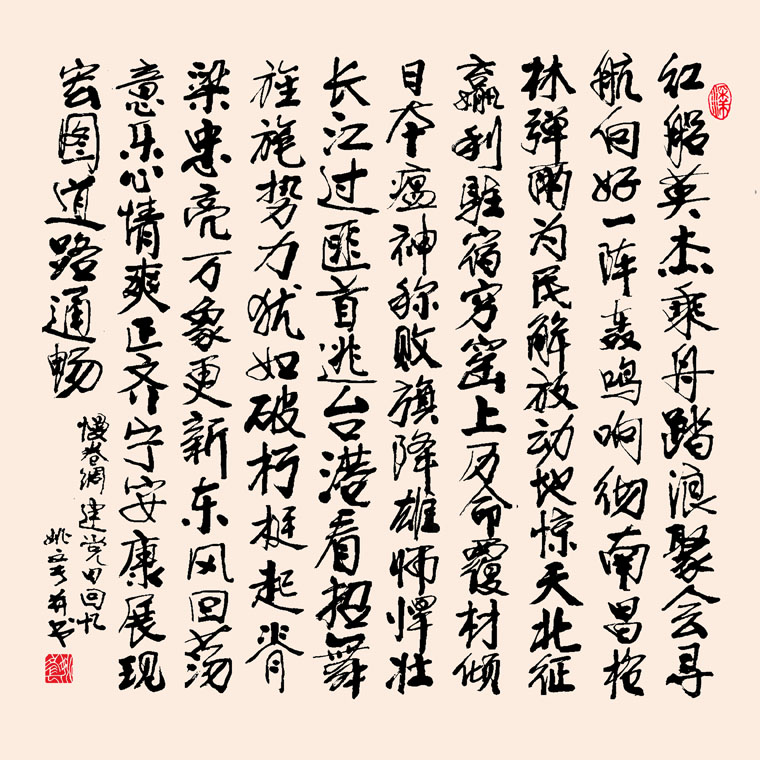 红船英杰乘舟踏浪聚会寻
航向好一阵轰鸣响彻南昌枪
林弹雨为民解放动地惊天北征
赢利驻宿穷窑上万命覆材倾
日本瘟神称败旗降雄师悍壮
长江过匪首逃台港看招舞
旌旄势力犹如破朽梃起脊
梁忠亮万象更新东风回荡
意乐心情爽正齐宁安康展现
宏图道路通畅
慢卷绸 建党 回忆
姚 并书